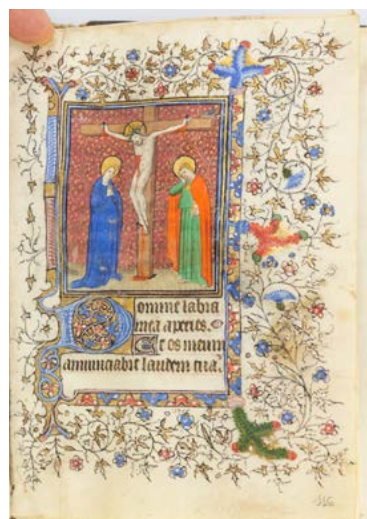 Domine labia
mea aperies.
Et os meum
annunciabit laudem tua.